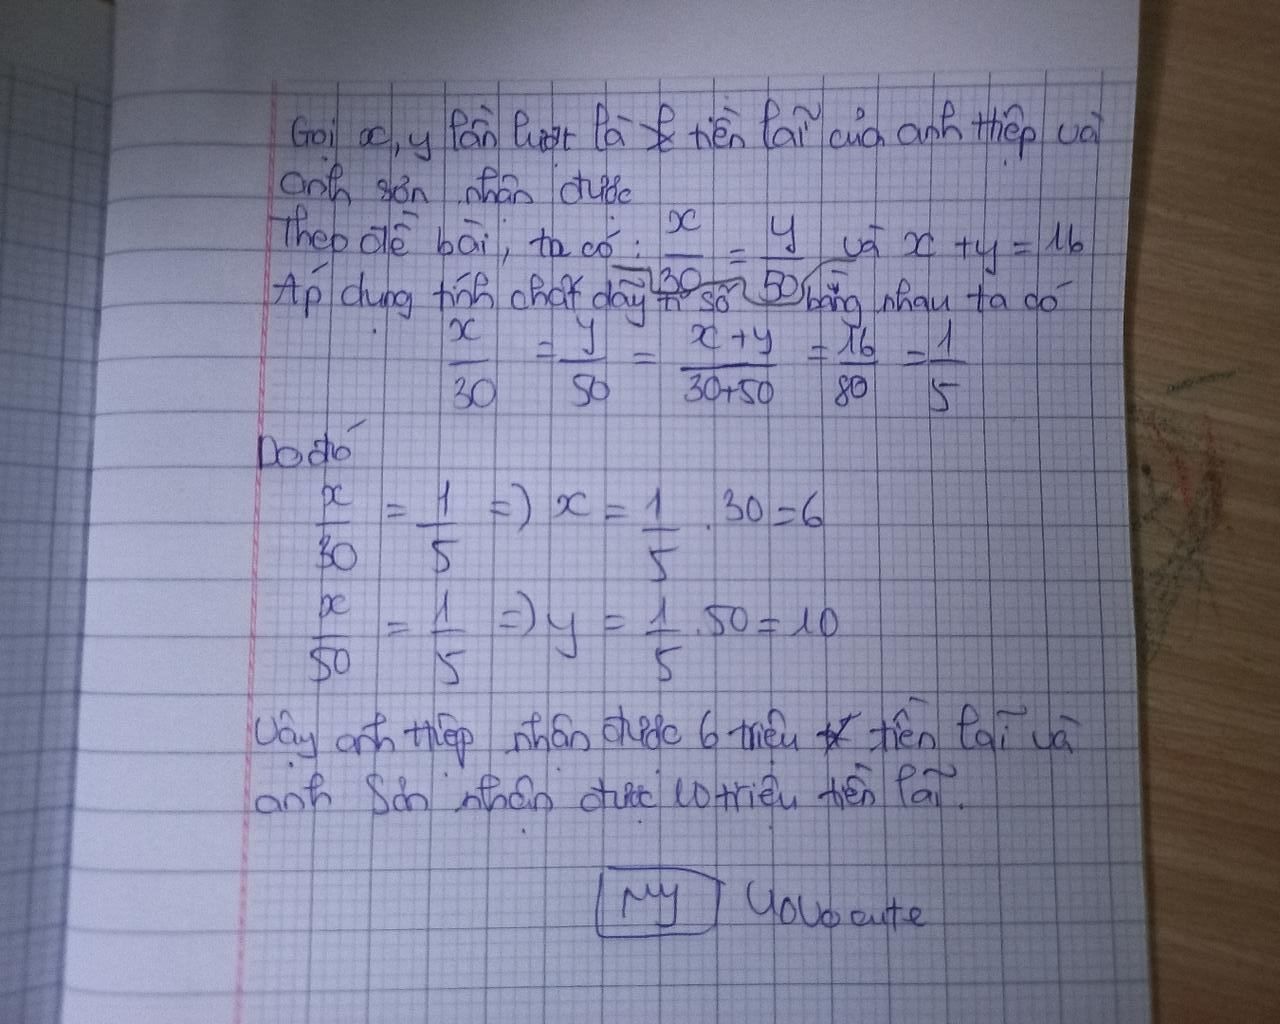 Gọi x, y lần lượt là tiền lãi của anh thiệp và
anh sơn nhận được
Theo đề bài, ta có: x/30 = y/50 và x + y = 16
Áp dụng tính chất dãy tỉ số bằng nhau ta có
x/30 = y/50 = x+y/30+50 = 16/80 = 1/5
Do đó
x/30 = 1/5 => x = 1/5 . 30 = 6
x/50 = 1/5 => y = 1/5 . 50 = 10
Vậy anh thiệp nhận được 6 triệu tiền lãi và
anh Sơn nhận được 10 triệu tiền lãi.
My